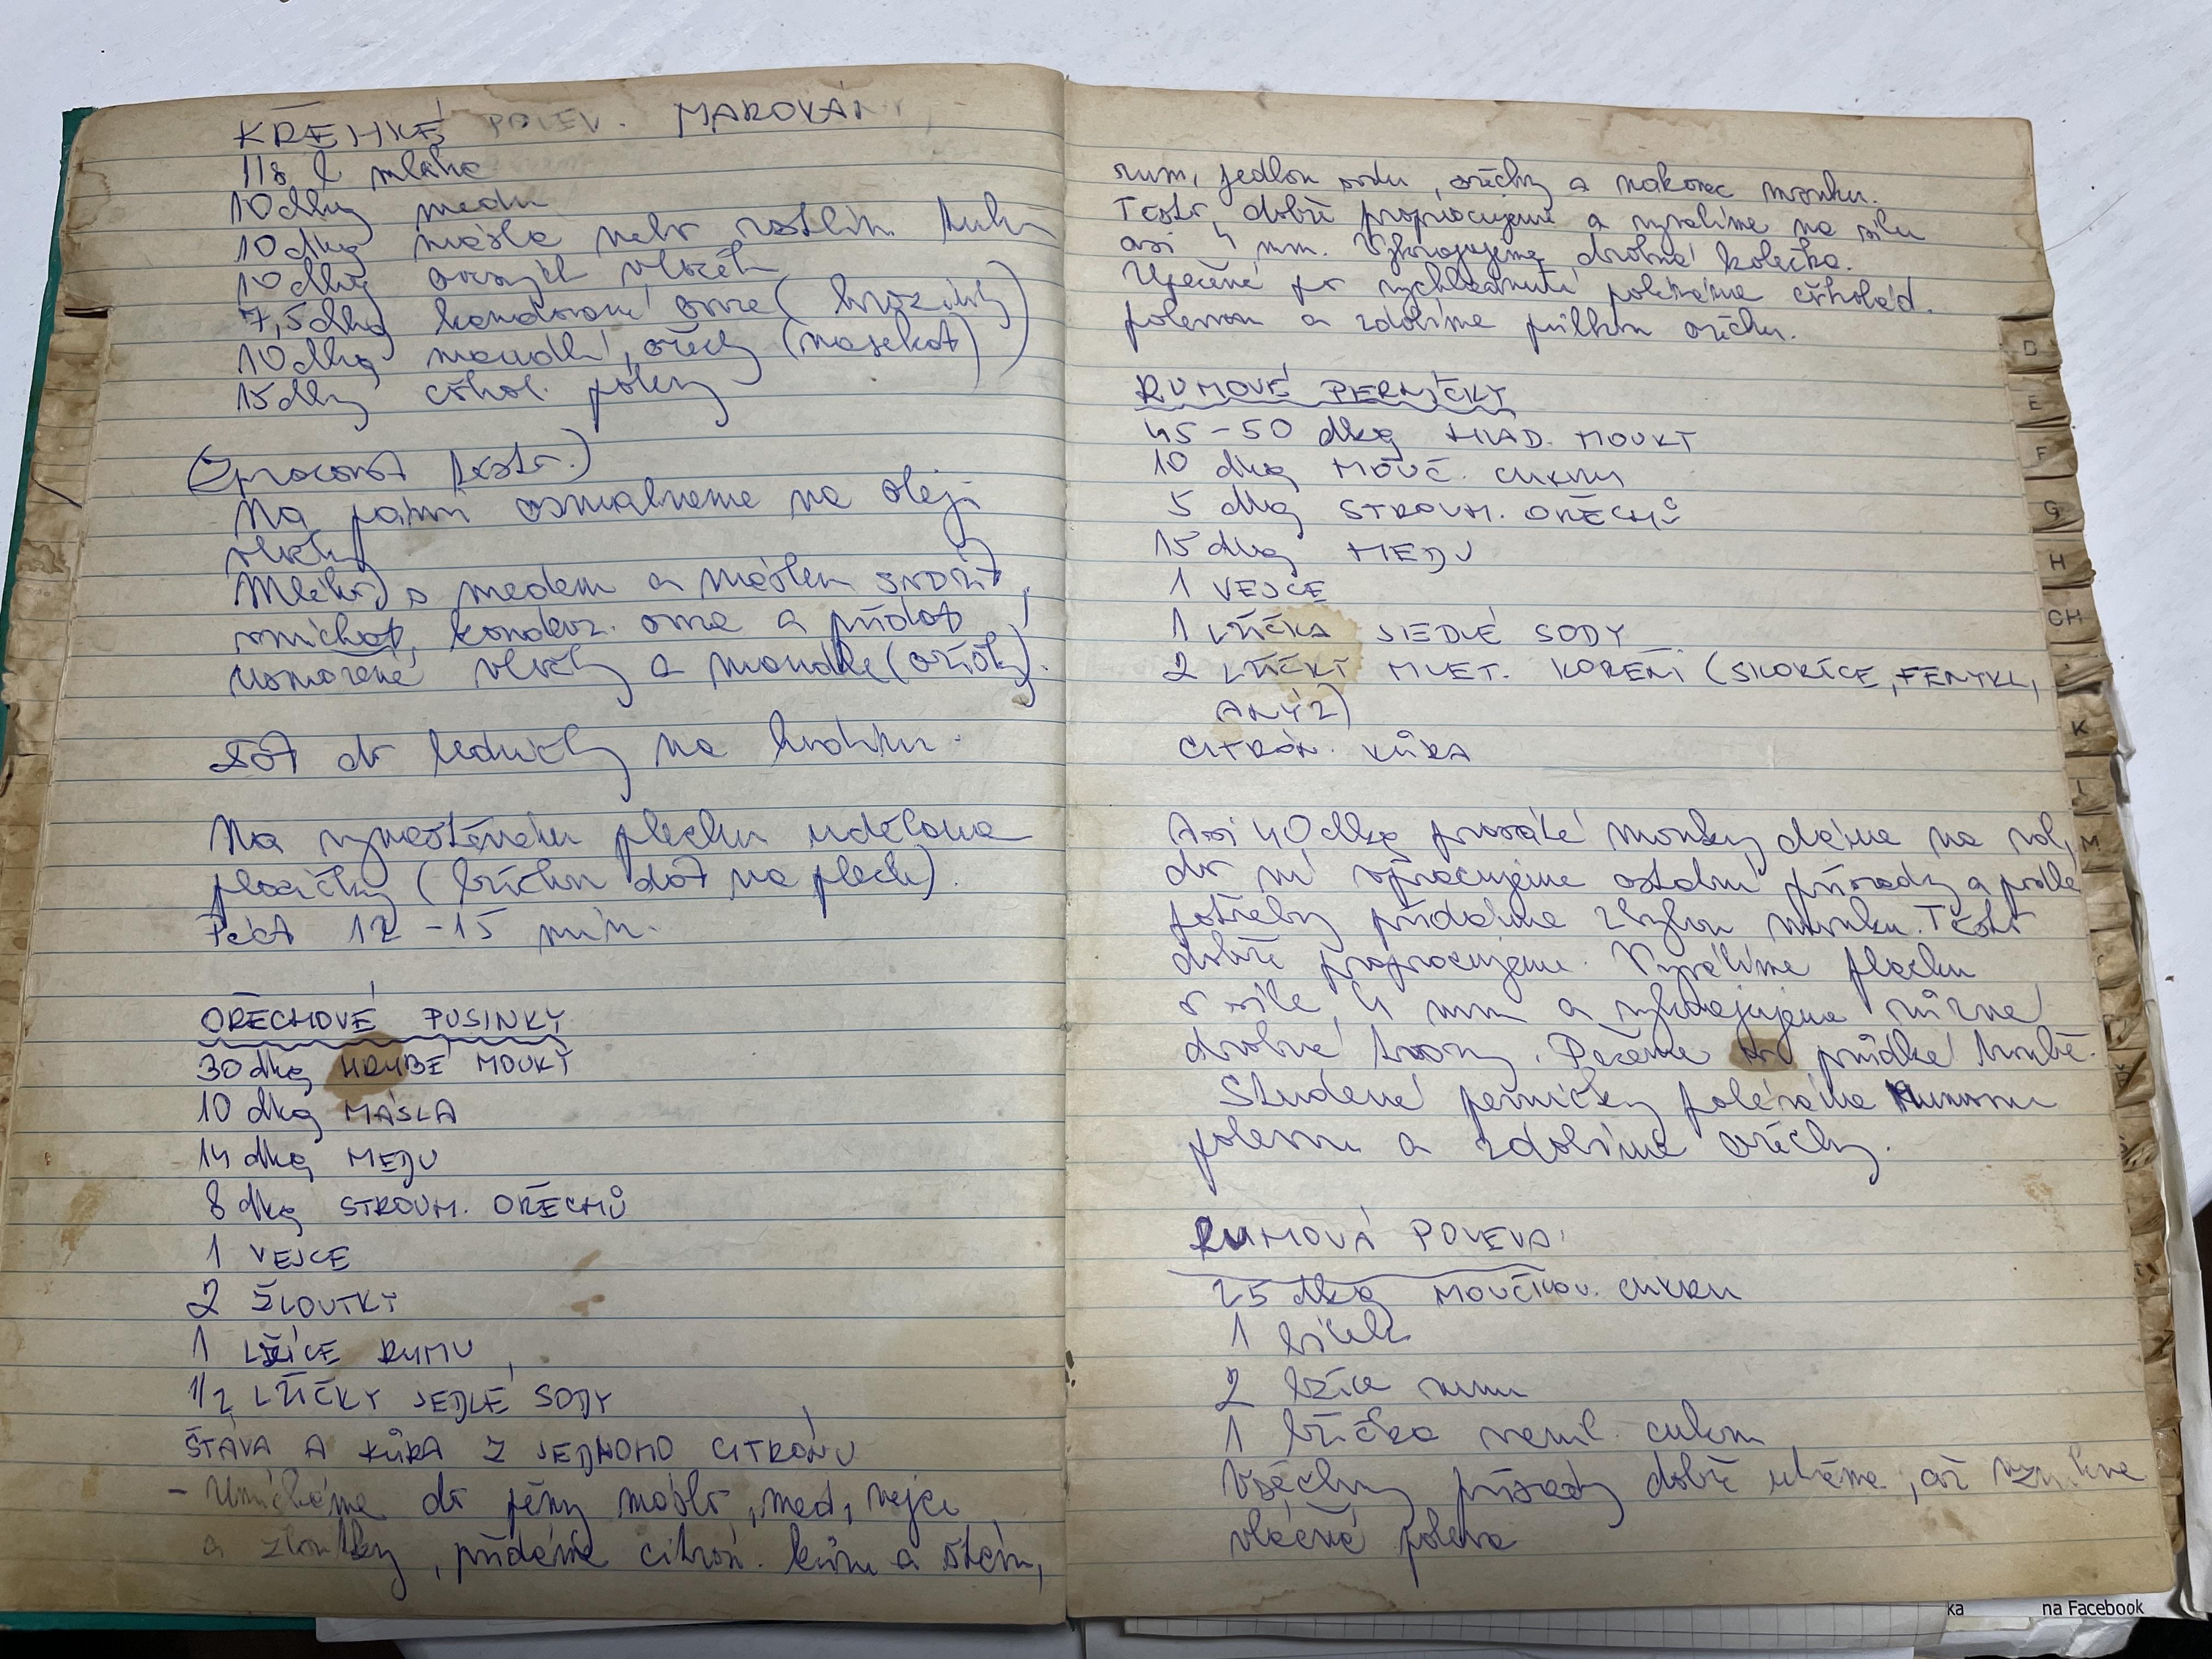 KŘEHKÉ POLEV. MAROVÁNÍ
1/8 l mléka
10 dkg medu
10 dkg másla nebo rostlin. tuku
10 dkg ovesných vloček
7,5 dkg kandované ovoce (hrozinky)
10 dkg mandlí, ořechy (nasekat)
15 dkg čokol. polevy
(Zpracovat těsto.)
Na pánvi osmahneme na oleji
vločky
(Mléko s medem a máslem SVAŘIT)
vmíchat kandov. ovoce a přidat
namočené vločky a mandle (oříšky).
Dát do ledničky na hodinu.
Na vymaštěném plechu uděláme
placičky (lžičkou dát na plech).
Péct 12 - 15 min.
OŘECHOVÉ PUSINKY
30 dkg HRUBÉ MOUKY
10 dkg MÁSLA
14 dkg MEDU
8 dkg STROUH. OŘECHŮ
1 VEJCE
2 ŽLOUTKY
1 LŽÍCE RUMU
1/2 LŽIČKY JEDLÉ SODY
ŠŤÁVA A KŮRA Z JEDNOHO CITRÓNU
- Umícháme do pěny máslo, med, vejce
a žloutky, přidáme citrón. kůru a šťávu,
rum, jedlou sodu, ořechy a nakonec mouku.
Těsto dobře propracujeme a vyválíme na sílu
asi 4 mm. Vykrajujeme drobná kolečka.
Upečené po vychladnutí potáhneme čokolád.
polevou a zdobíme půlkou ořechu.
RUMOVÉ PERNÍČKY
45 - 50 dkg HLAD. MOUKY
10 dkg MOUČ. CUKRU
5 dkg STROUH. OŘECHŮ
15 dkg MEDU
1 VEJCE
1 LŽIČKA JEDLÉ SODY
2 LŽIČKY MLET. KOŘENÍ (SKOŘICE, FENYKL,
ANÝZ)
CITRÓN. KŮRA
Asi 40 dkg prosáté mouky dáme na vál,
do ní vpracujeme ostatní přísady a podle
potřeby přidáme zbylou mouku. Těsto
dobře propracujeme. Vyválíme placku
o síle 4 mm a vykrajujeme různé
drobné tvary. Pečeme do prudké troubě.
Studené perníčky poléváme rumovou
polevou a zdobíme ořechy.
RUMOVÁ POLEVA.
25 dkg MOUČKOV. CUKRU
1 bílek
2 lžíce rumu
1 lžička vanil. cukru
Všechny přísady dobře utřeme, až vznikne
vláčná poleva
D
E
F
G
H
CH
K
L
M
ka
na Facebook